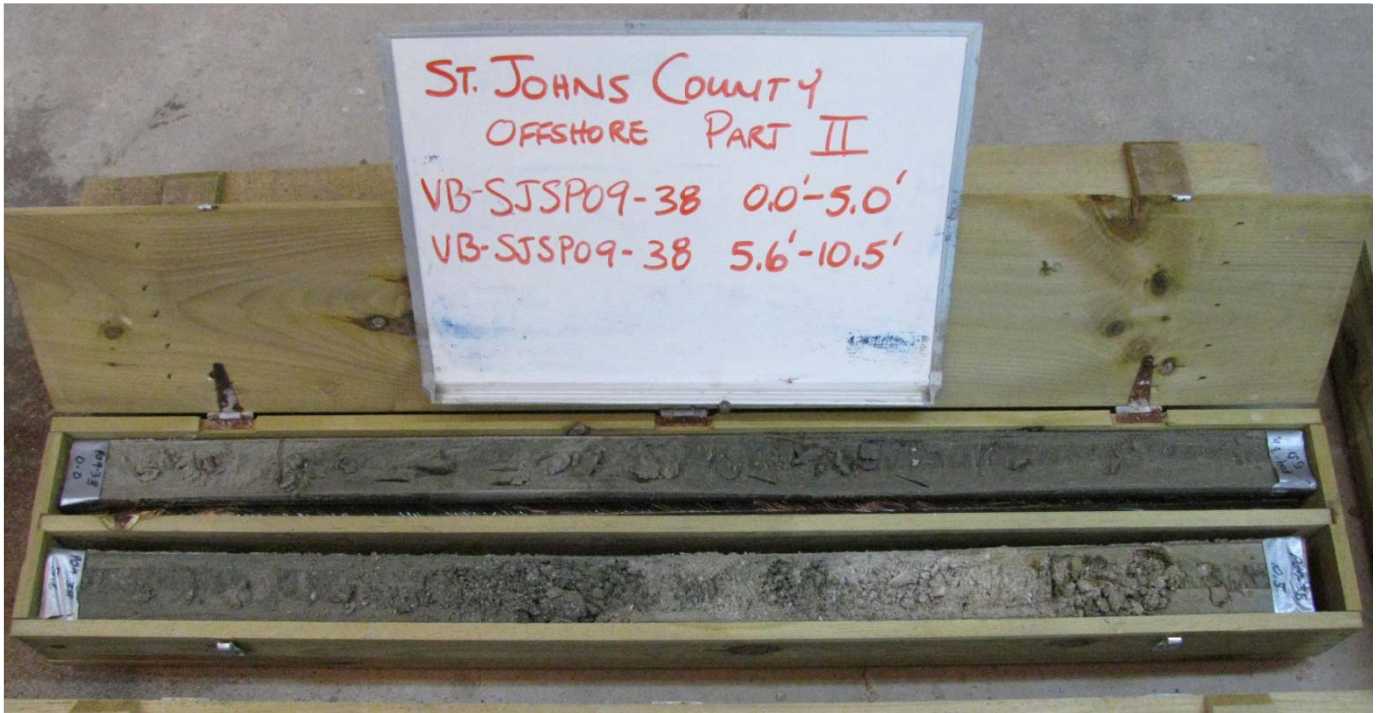 ST. JOHNS COUNTY
OFFSHORE PART II
VB-SJSP09-38 0.0'-5.0'
VB-SJSP09-38 5.6'-10.5'
P09-38
0.0
10.5